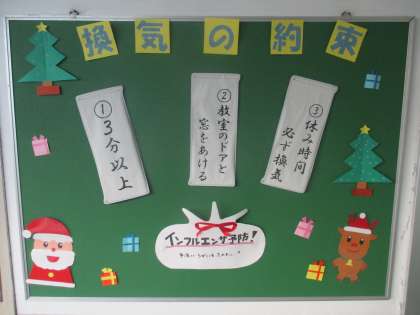 換気の約束
①3分以上
②教室のドアと
窓をあける
③休み時間
必ず換気
インフルエンザ予防!